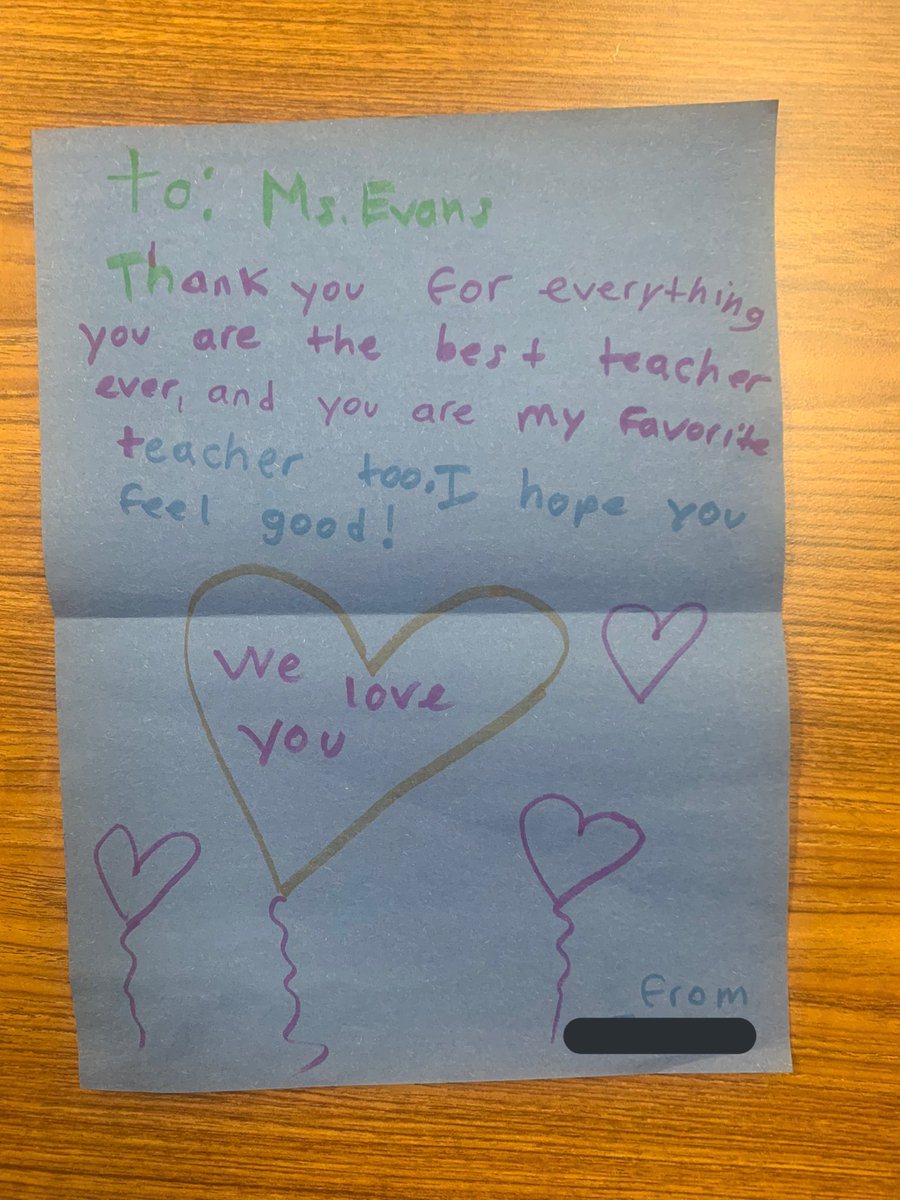 to: Ms. Evans
Thank you for everything
you are the best teacher
ever, and you are my favorite
teacher too. I hope you
feel good!
We love
you
from